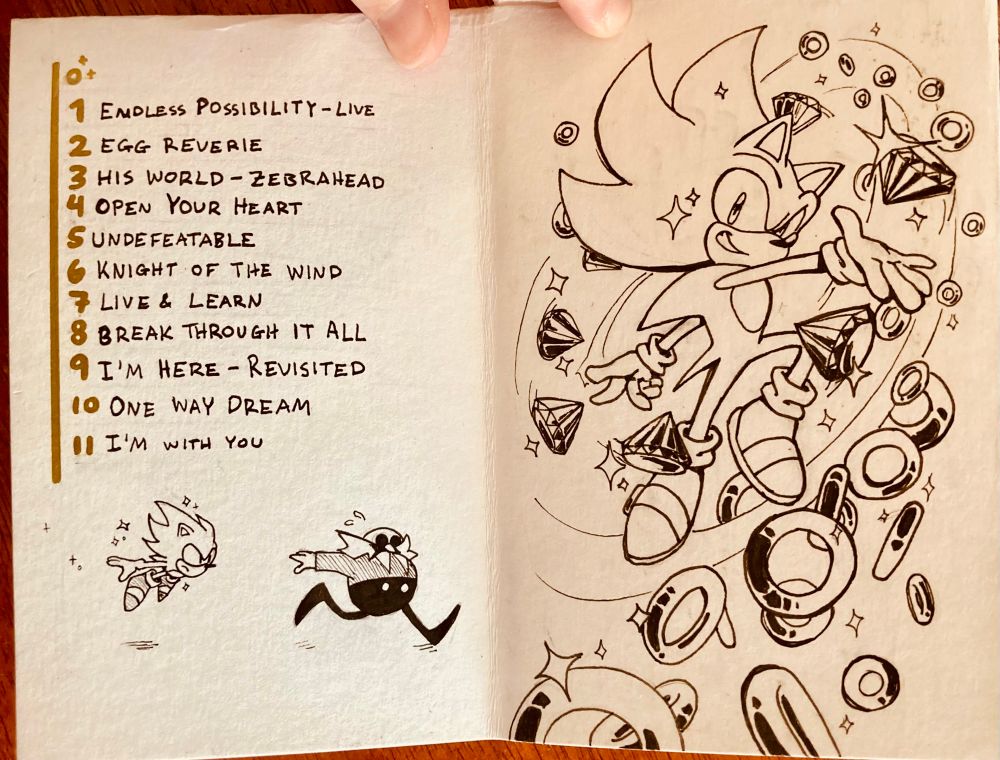 0
1 ENDLESS POSSIBILITY-LIVE
2 EGG REVERIE
3 HIS WORLD-ZEBRAHEAD
4 OPEN YOUR HEART
5 UNDEFEATABLE
6 KNIGHT OF THE WIND
7 LIVE & LEARN
8 BREAK THROUGH IT ALL
9 I'M HERE-REVISITED
10 ONE WAY DREAM
11 I'M WITH YOU